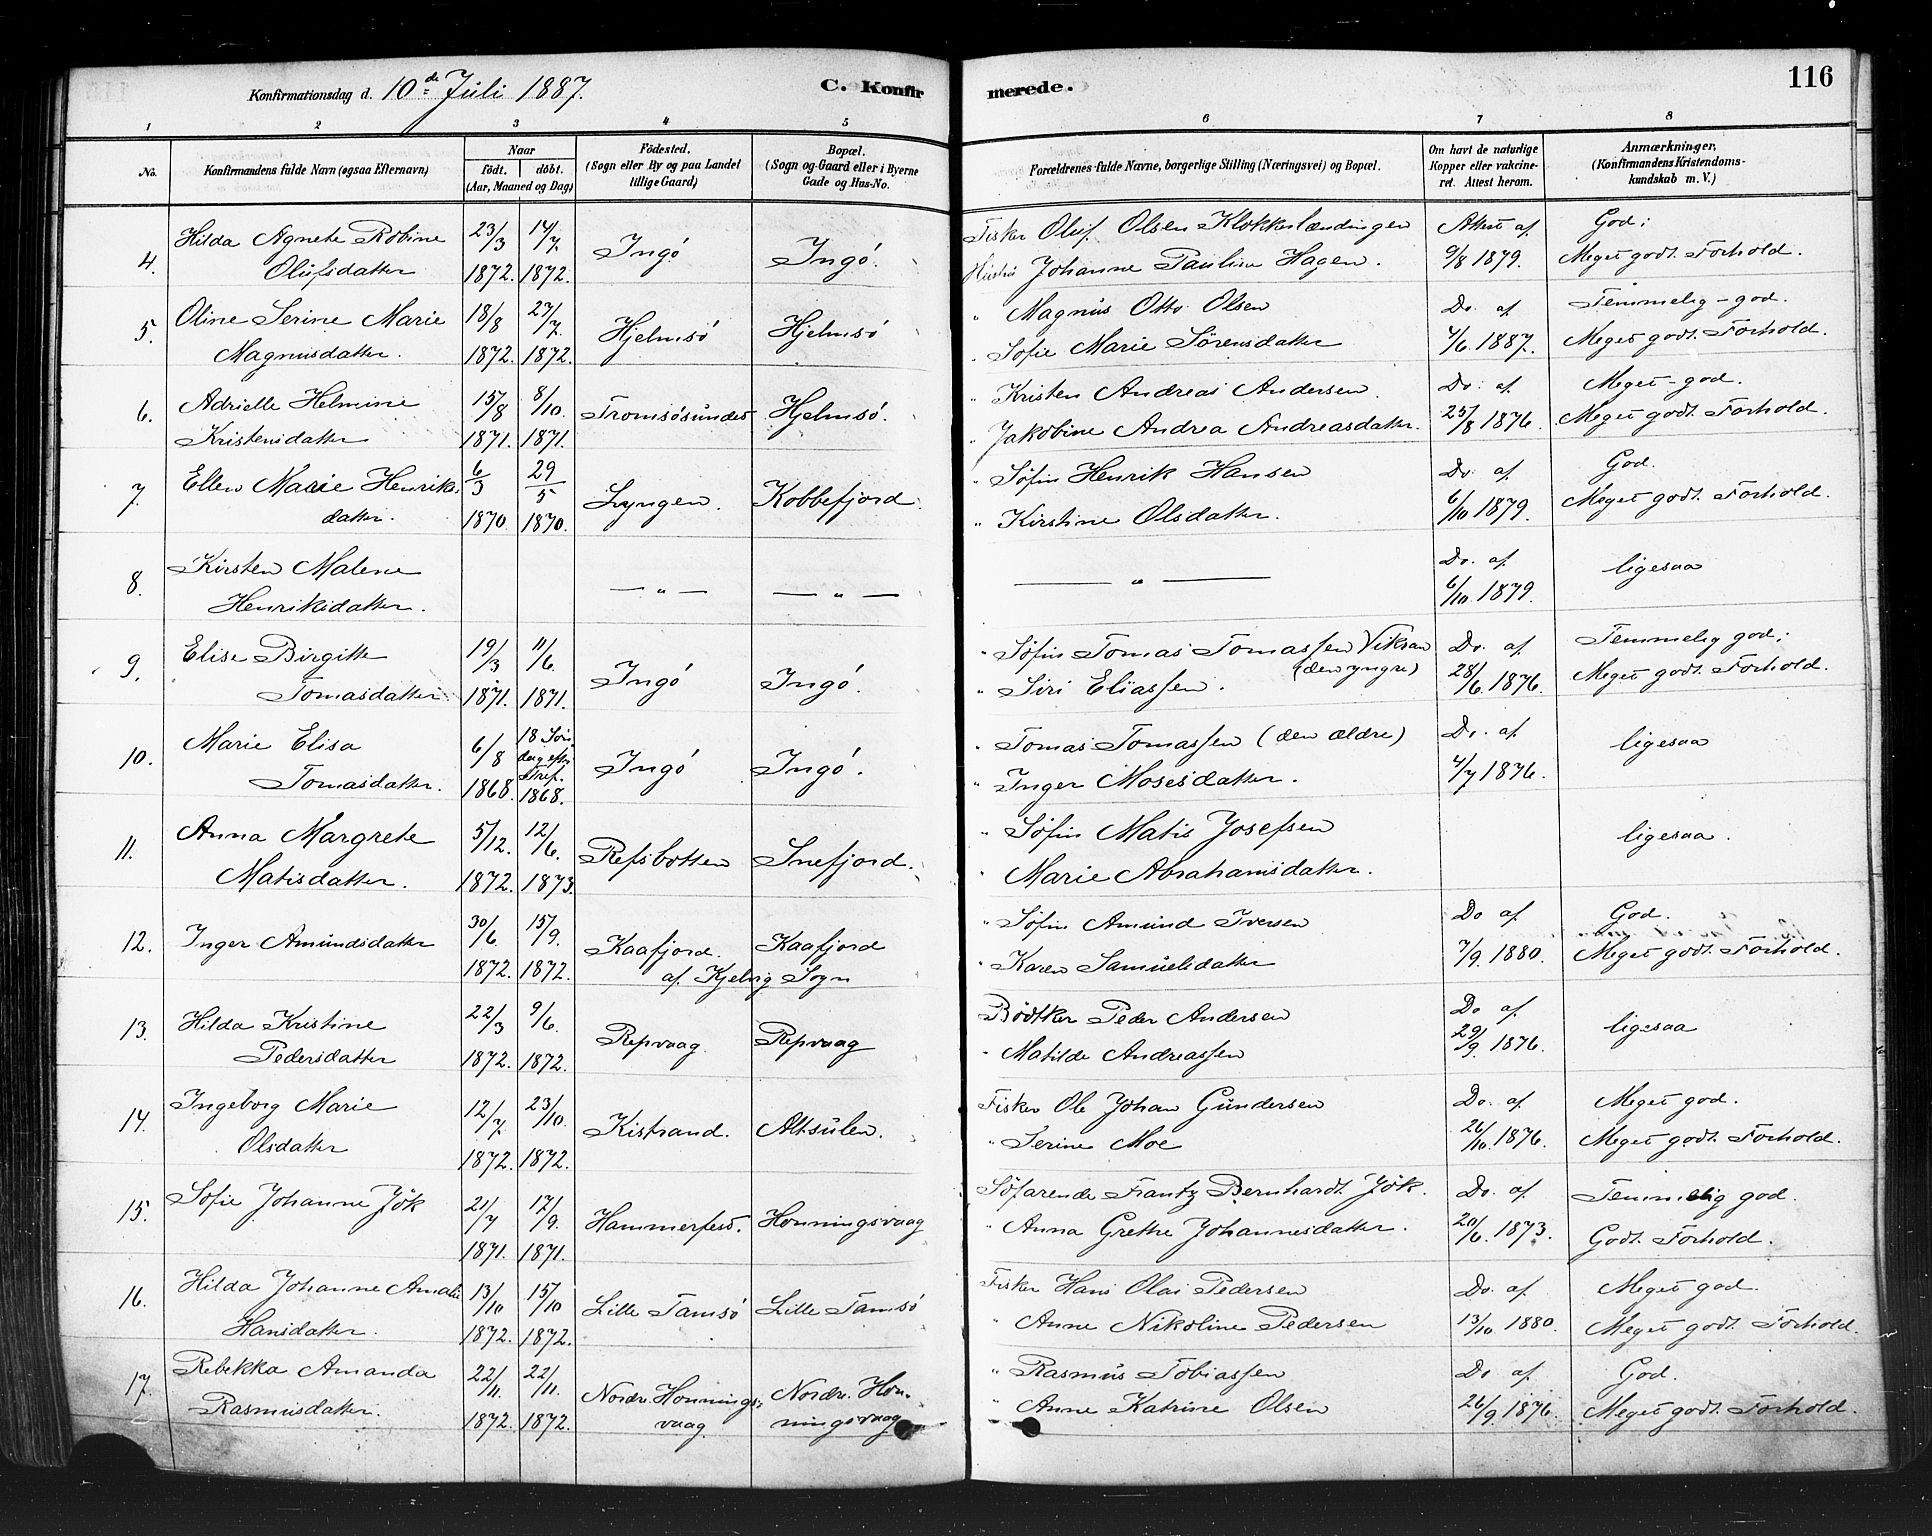 Konfirmationsdag d. 10de Juli 1887. C. Konfirmerede. 116
1 2 3 4 5 6 7 8
No. Konfirmandens fulde Navn (ogsaa Efternavn) Naar födt. döbt. (Aar, Maaned og Dag) Födested. (Sogn eller By og paa Landet tillige Gaard) Bopæl. (Sogn og Gaard eller i Byerne Gade og Hus-No. Forældrenes fulde Navne, borgerlige Stilling (Næringsvei) og Bopæl. Om havt de naturlige Kopper eller vakcineret. Attest herom. Anmærkninger. (Konfirmandens Kristendomskundskab m. V.)
4. Hilda Agnete Robine 23/3 14/7. Ingö Ingö. Fisker Oluf Olsen Klokkelændingen Attest af God;
Olufsdatter 1872. 1872. Hustru Johanne Pauline Hagen. 9/8 1879. Meget godt Forhold.
5. Oline Serine Marie 18/8 27/7. Hjelmsö Hjelmsö " Magnus Otto Olsen Do. af Temmelig-god.
Magnusdatter. 1872. 1872. " Sofie Marie Sörensdatter 4/6. 1887. Meget godt Forhold.
6. Adrielle Helmine 15/8 8/10. Tromsösundet Hjelmsö. " Kristen Andreas Andersen. Do. af. Meget-god.
Kristensdatter 1871. 1871. " Jakobine Andrea Andreasdatter. 25/8 1876. Meget godt Forhold.
7. Ellen Marie Henriks- 6/3 29/5 Lyngen. Kobbefjord. " Söfin Henrik Hansen Do. af. God.
datter. 1870. 1870. " Kirstine Olsdatter. 6/10 1879. Meget godt Forhold.
8. Kirsten Malene — " — — " — — " — Do. af. ligesaa
Henriksdatter. 6/10. 1879.
9. Elise Birgitte 19/3 11/6. Ingö Ingö. " Söfin Tomas Tomassen Viksan Do. af. Temmelig god;
Tomasdatter. 1871. 1871. " Siri Eliassen. (den yngre) 28/6. 1876. Meget godt Forhold.
10. Marie Elisa 6/8 18 Sön dag efter Tref. Ingö Ingö. " Tomas Tomassen (den ældre) Do. af. ligesaa
Tomasdatter. 1868. 1868. " Inger Mosesdatter. 4/7 1876.
11. Anna Margrete 5/12. 12/6. Refsbotten Snefjord. " Söfin Matis Josefsen ligesaa.
Matisdatter. 1872. 1873. " Marie Abrahamsdatter.
12. Inger Amundsdatter 30/6. 15/9. Kaafjord. Kaafjord " Söfin Amund Iversen Do af. God.
1872. 1872. af. Kjelvig Sogn " Karen Samuelsdatter 7/9. 1880. Meget godt Forhold.
13. Hilda Kristine 22/3 9/6. Repvaag. Repvaag Bödtker Peder Andersen Do af. ligesaa
Pedersdatter 1872. 1872. " Matilde Andreassen 29/9. 1876.
14. Ingeborg Marie 12/7. 23/10. Kistrand. Altsulen. Fisker Ole Johan Gundersen Do. af. Meget god.
Olsdatter 1872. 1872. " Serine Moe 26/10. 1876. Meget godt Forhold.
15. Sofie Johanne Jök 21/7 17/9. Hammerfest. Honningsvaag Söfarende Frantz Bernhardt Jök. Do. af. Temmelig god.
1871. 1871. " Anna Grethe Johannesdatter. 20/6. 1873. Godt Forhold.
16. Hilda Johanne Amalie 13/10 15/10 Lille Tamsö Lille Tamsö Fisker Hans Olai Pedersen Do. af. Meget god.
Hansdatter. 1872. 1872. " Anne Nikoline Pedersen 13/10. 1880. Meget godt Forhold.
17. Rebekka Amanda 22/11. 22/11. Nordr. Honnings- Nordr. Hon- " Rasmus Tobiassen Do. af. God.
Rasmusdatter. 1872. 1872. vaag ningsvaag " Anne Katrine Olsen 26/9 1876. Meget godt Forhold.